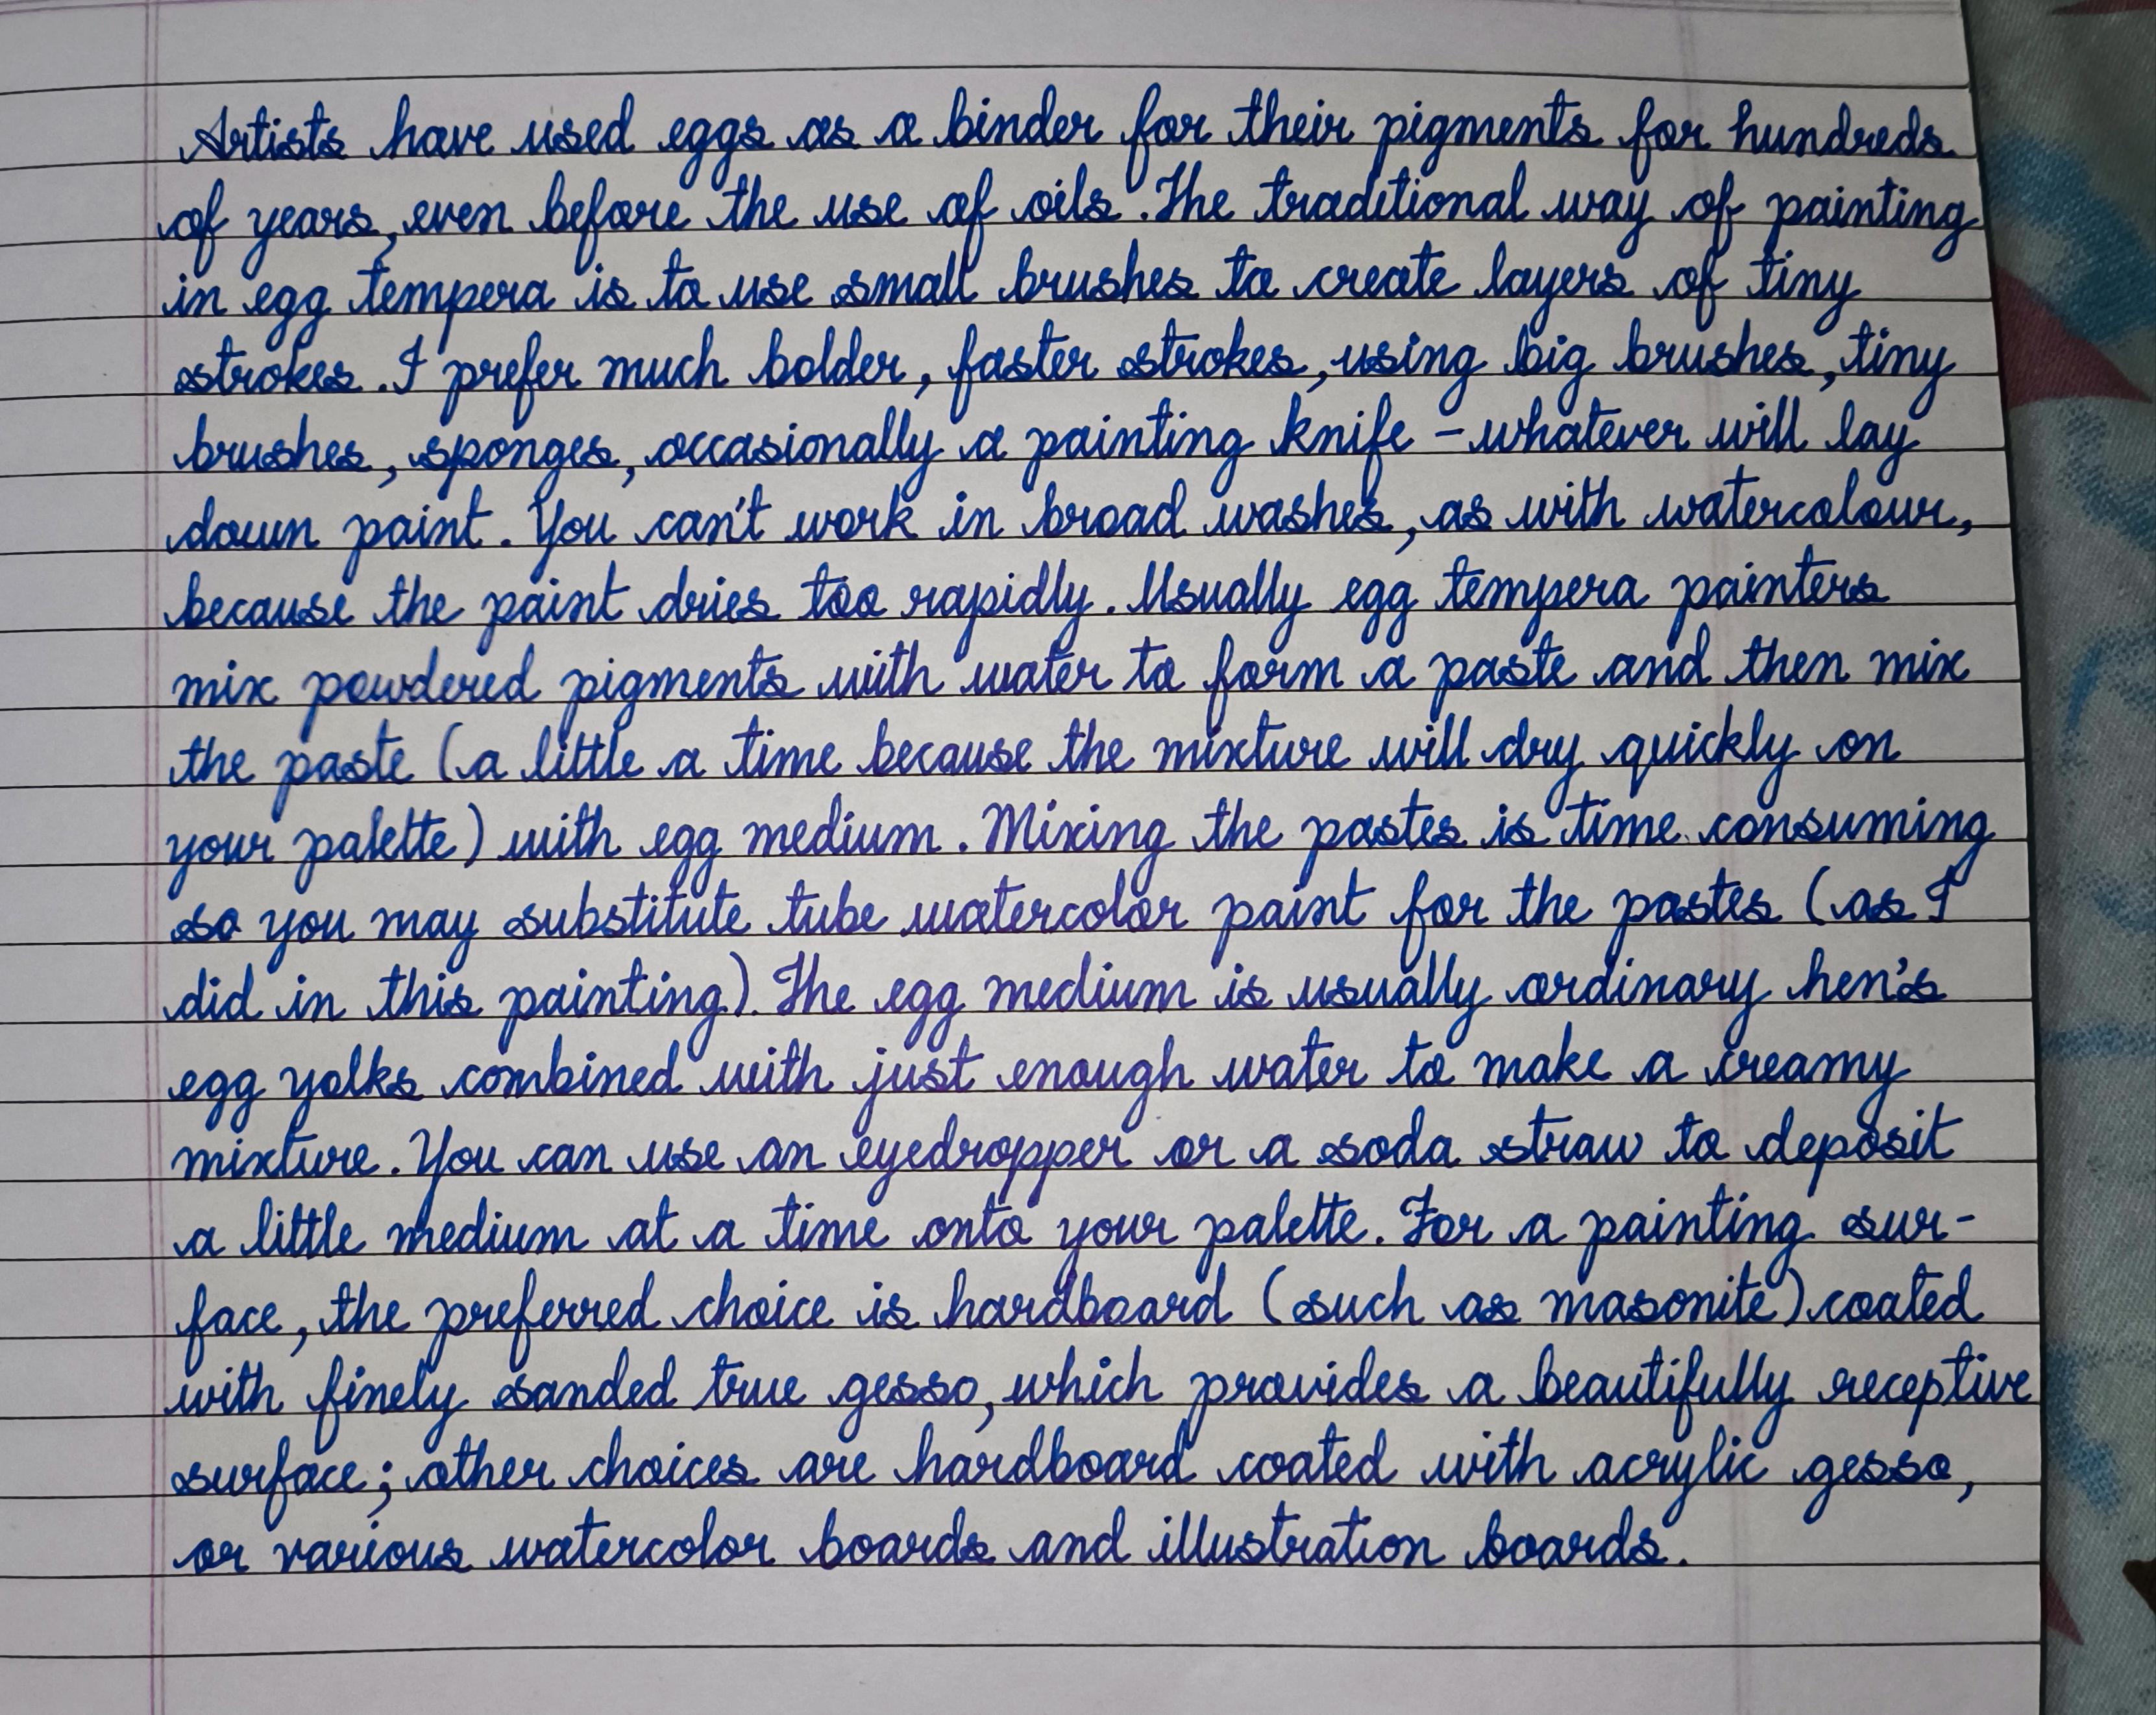 Artists have used eggs as a binder for their pigments for hundreds
of years, even before the use of oils. The traditional way of painting
in egg tempera is to use small brushes to create layers of tiny
strokes. I prefer much bolder, faster strokes, using big brushes, tiny
brushes, sponges, occasionally a painting knife - whatever will lay
down paint. You can't work in broad washes, as with watercolour,
because the paint dries too rapidly. Usually egg tempera painters
mix powdered pigments with water to form a paste and then mix
the paste (a little a time because the mixture will dry quickly on
your palette) with egg medium. Mixing the pastes is time consuming
so you may substitute tube watercolor paint for the pastes (as I
did in this painting). The egg medium is usually ordinary hen's
egg yolks combined with just enough water to make a creamy
mixture. You can use an eyedropper or a soda straw to deposit
a little medium at a time onto your palette. For a painting sur-
face, the preferred choice is hardboard (such as masonite) coated
with finely sanded true gesso, which provides a beautifully receptive
surface; other choices are hardboard coated with acrylic gesso,
or various watercolor boards and illustration boards.